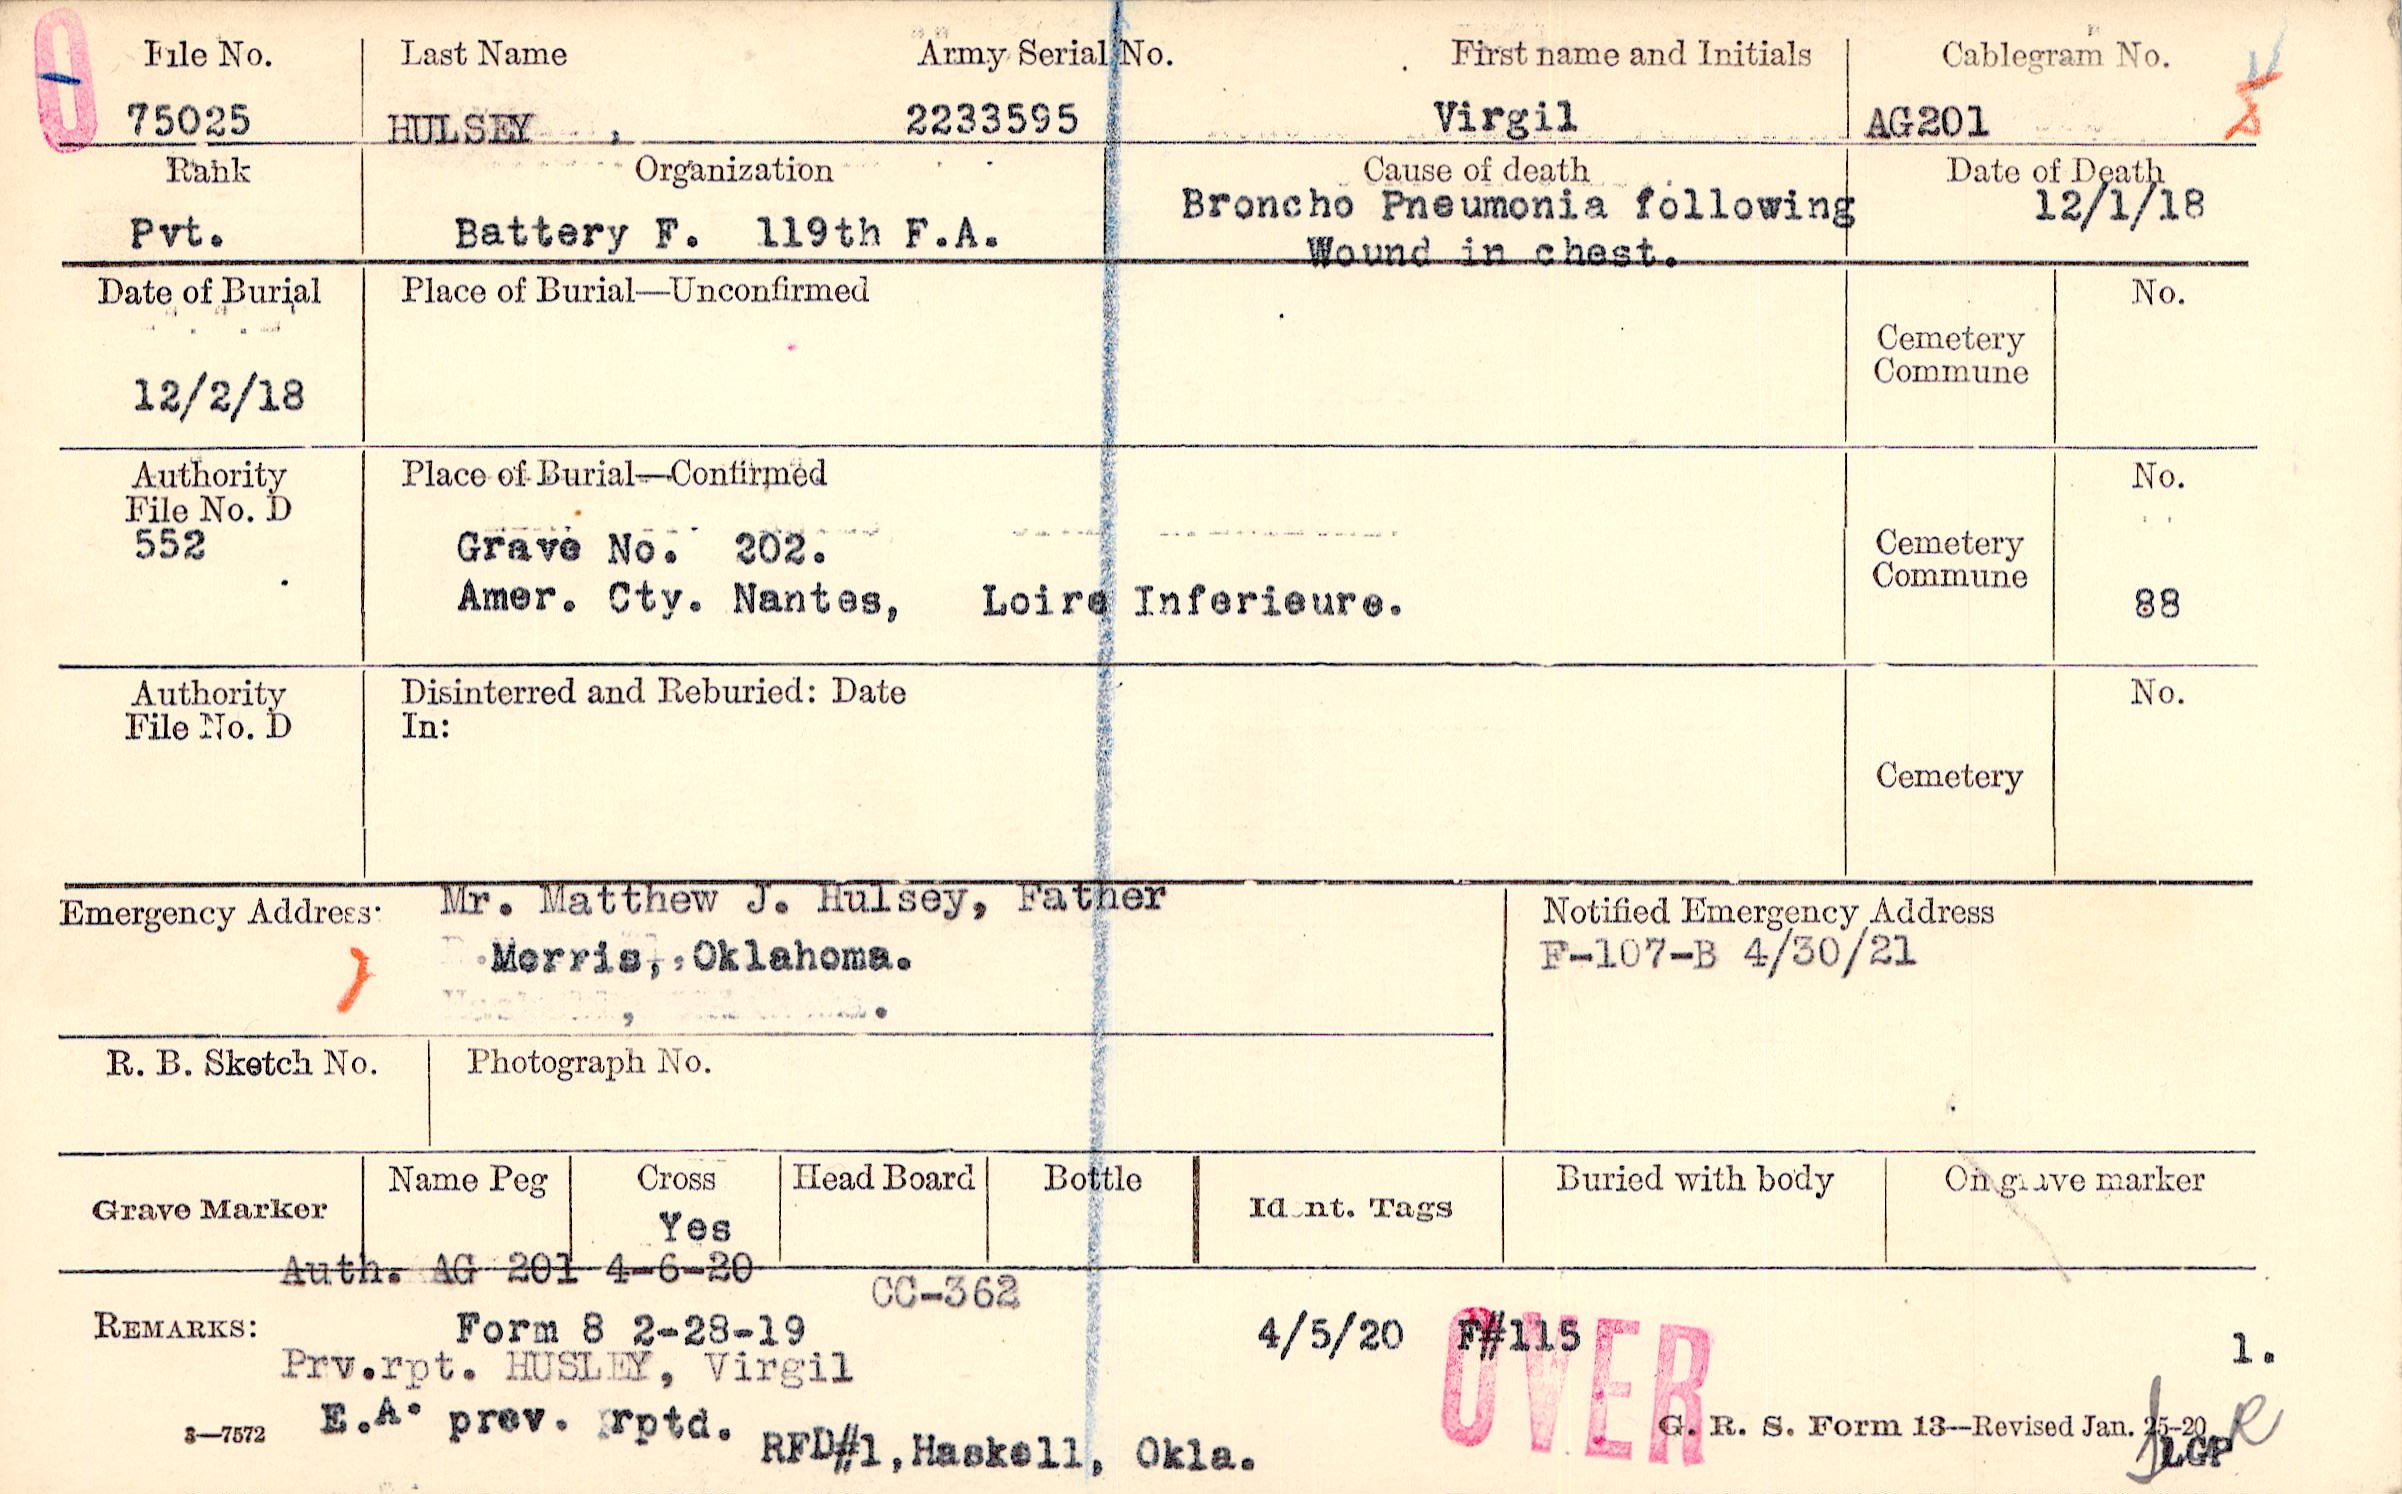 File No. Last Name Army Serial No. First name and Initials Cablegram No.
75025 HULSEY, 2233595 Virgil AG201
Rank Organization Cause of death Date of Death
Pvt. Battery F. 119th F.A. Broncho Pneumonia following 12/1/18
Wound in chest.
Date of Burial Place of Burial—Unconfirmed No.
Cemetery
Commune
12/2/18
Authority Place of Burial—Confirmed No.
File No. D
552 Grave No. 202. Cemetery
Commune
Amer. Cty. Nantes, Loire Inferieure. 88
Authority Disinterred and Reburied: Date No.
File No. D In:
Cemetery
Emergency Address: Mr. Matthew J. Hulsey, Father Notified Emergency Address
Morris, Oklahoma. F-107-B 4/30/21
R. B. Sketch No. Photograph No.
Grave Marker Name Peg Cross Head Board Bottle Ident. Tags Buried with body On grave marker
Yes
Auth. AG 201 4-6-20
CC-362
REMARKS: Form 8 2-28-19 4/5/20 F#115 1.
Prv.rpt. HUSLEY, Virgil OVER
3—7572 E.A. prev. rptd. G. R. S. Form 13—Revised Jan. 25-20
RFD#1, Haskell, Okla. LGP